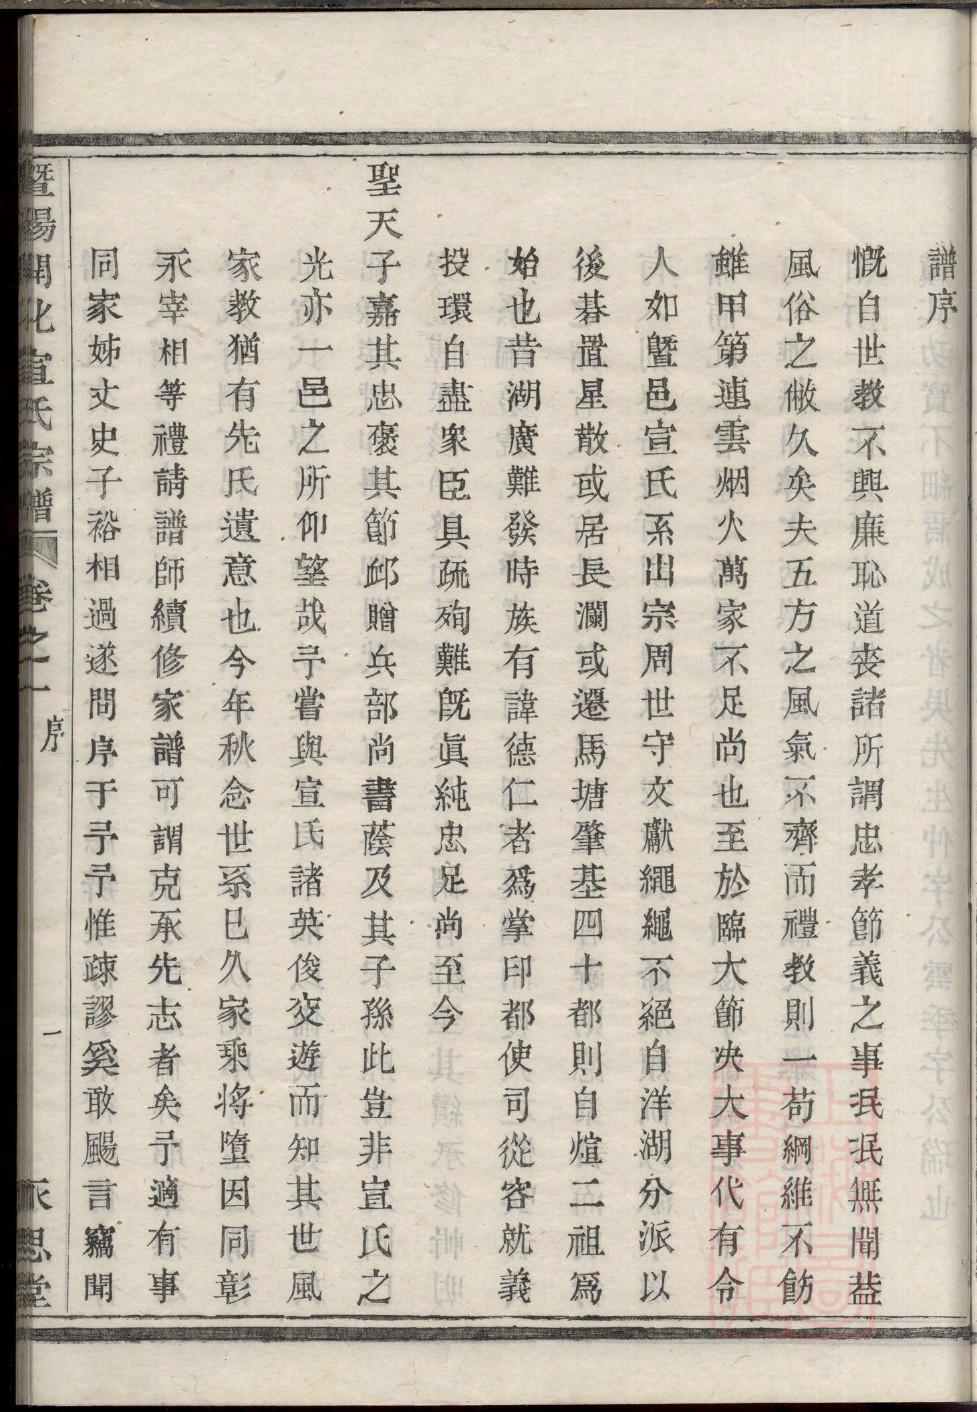 譜序
慨自世教不興廉恥道喪諸所謂忠孝節義之事泯泯無聞益
風俗之憿久矣夫五方之風氣不齊而禮教則一苟綱維不飭
雖甲第連雲烟火萬家不足尚也至於臨大節决大事代有令
人如曁邑宣氏系出宗周世守文獻繩繩不絕自洋湖分派以
後碁置星散或居長瀾或遷馬塘肇基四十都則自煊二祖爲
始也昔湖廣難發時族有諱德仁者爲掌印都使司從容就義
投環自盡衆臣具疏殉難旣眞純忠足尚至今
聖天子嘉其忠褒其節邮贈兵部尚書蔭及其子孫此豈非宣氏之
光亦一邑之所仰望哉予嘗與宣氏諸英俊交遊而知其世風
家教猶有先氏遺意也今年秋念世系已久家乘將墮因同彰
永宰相等禮請譜師續修家譜可謂克承先志者矣予適有事
同家姊丈史子裕相過遂問序于予予惟疎謬奚敢颺言竊聞
暨陽開化宣氏宗譜 卷之一 序 一 永思堂